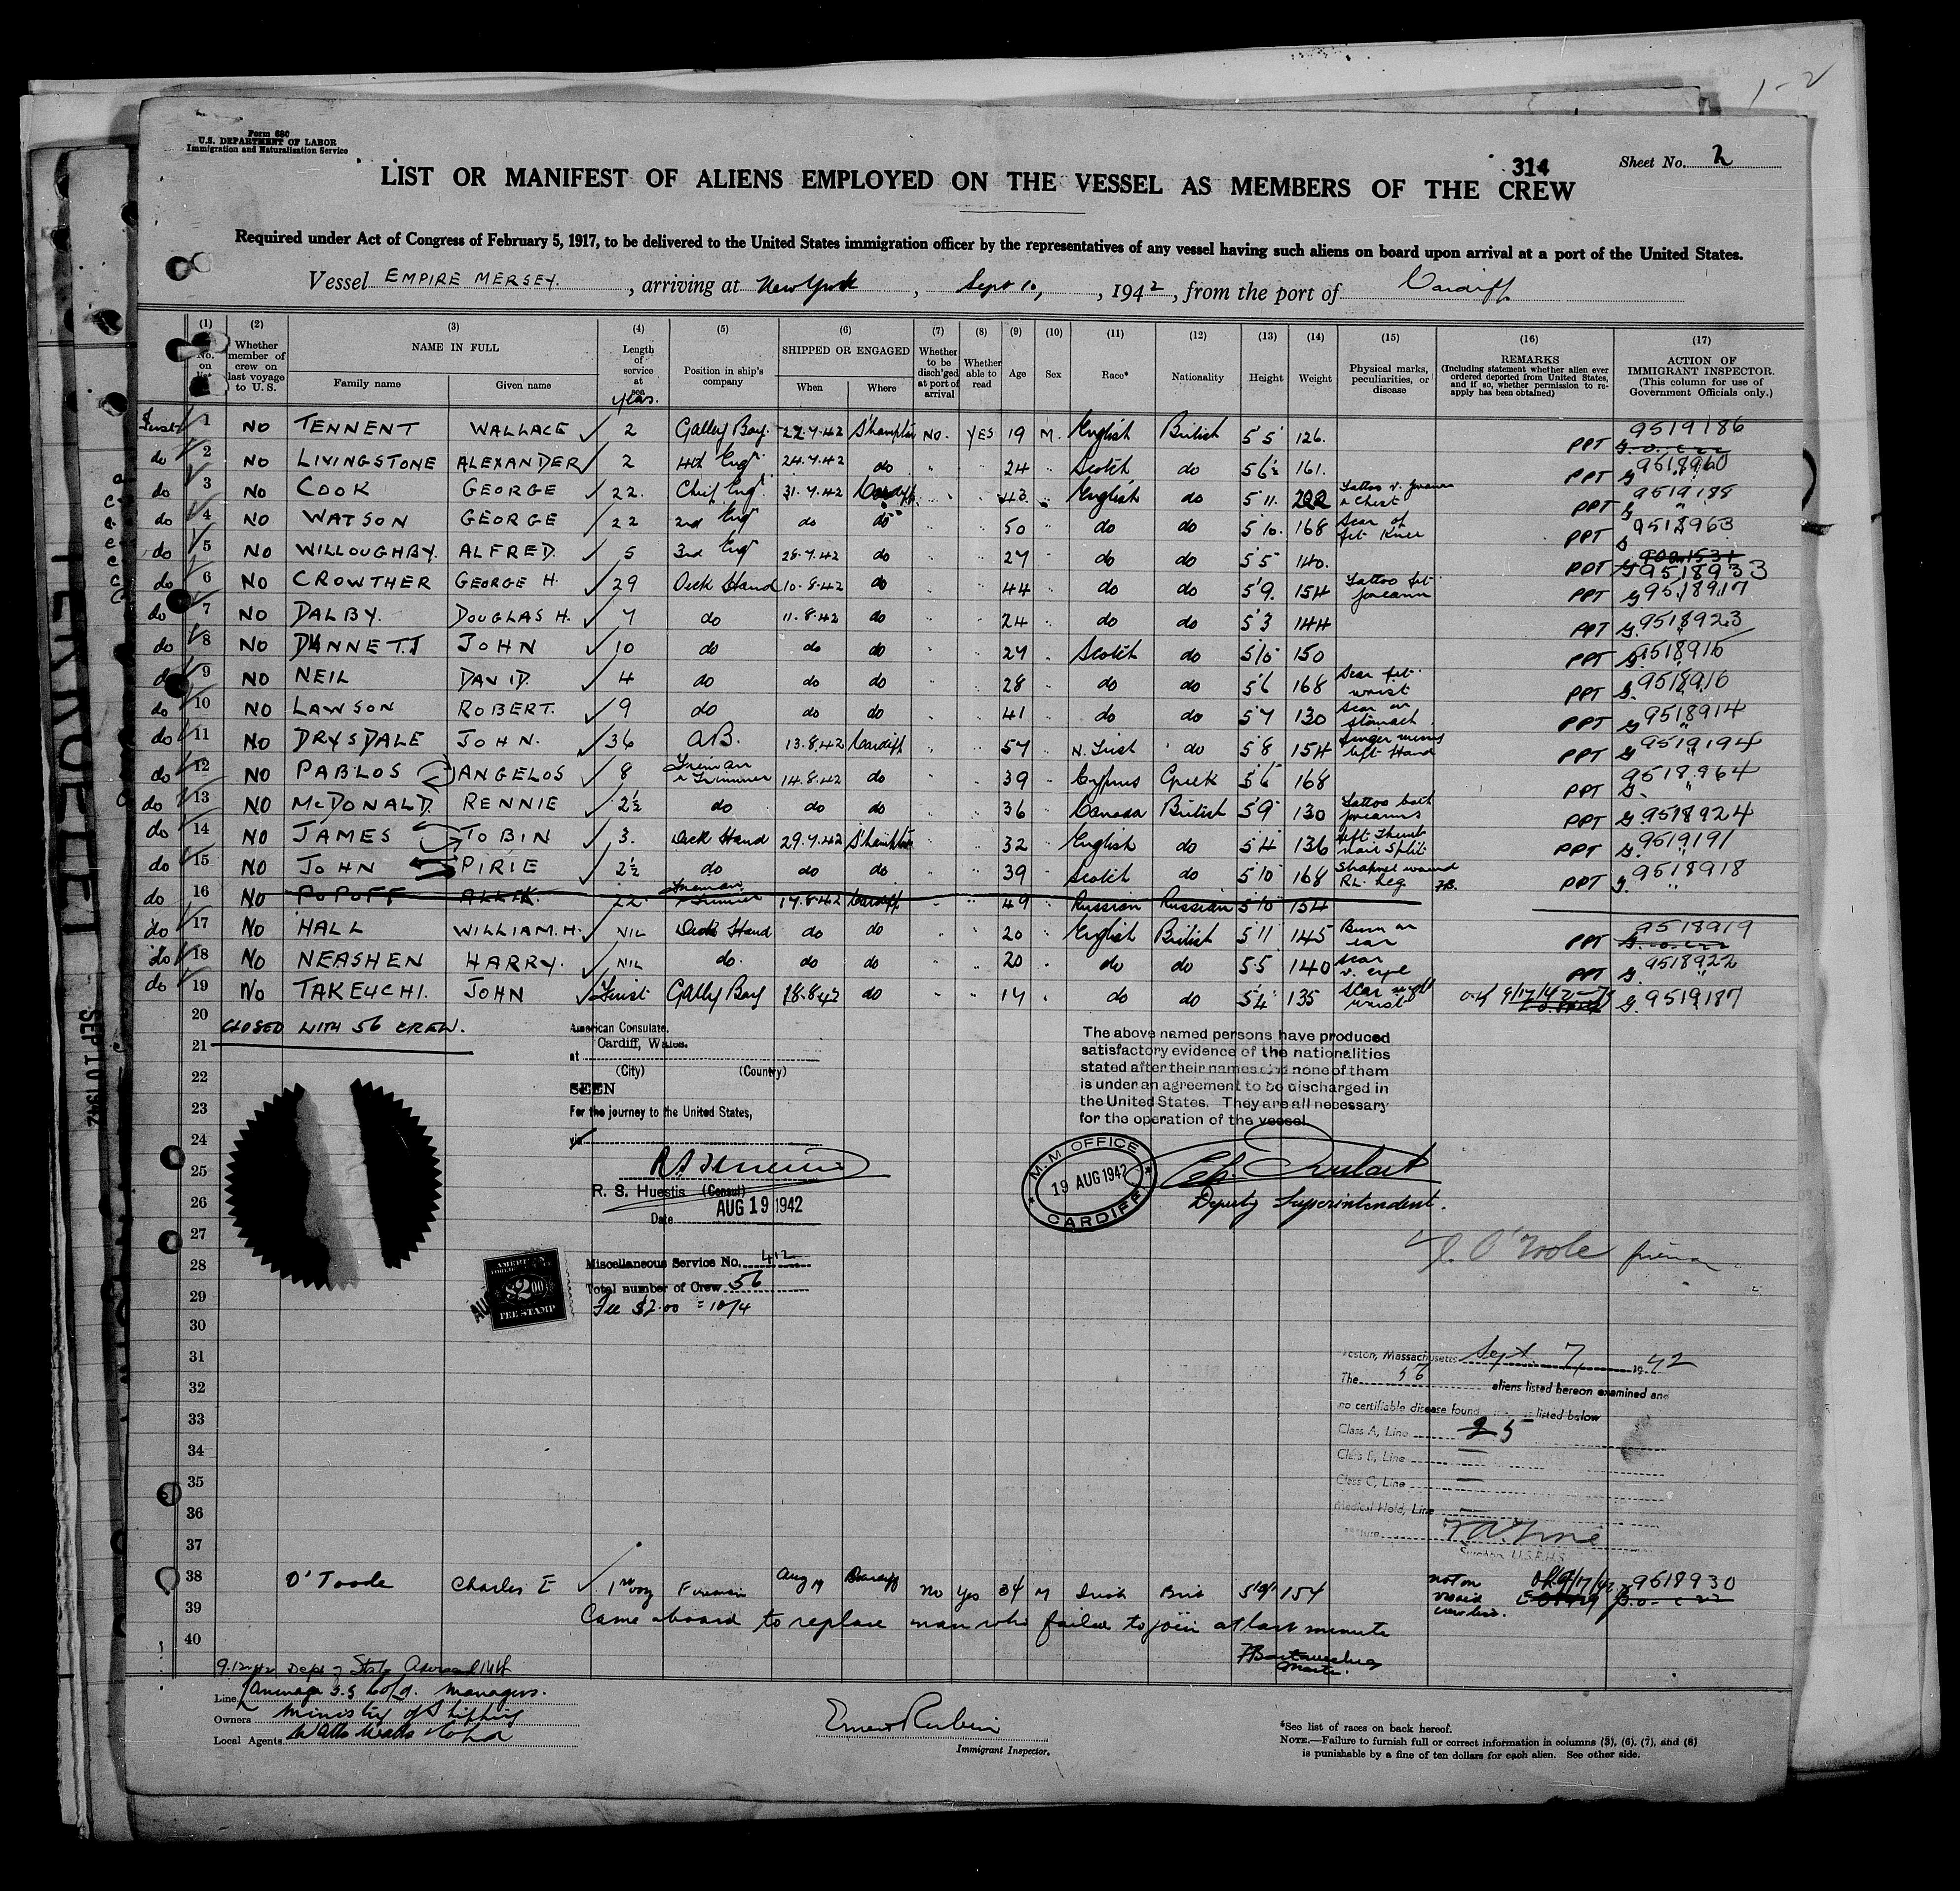 1-2
Form 680
U.S. DEPARTMENT OF LABOR
Immigration and Naturalization Service
314
Sheet No. 2
LIST OR MANIFEST OF ALIENS EMPLOYED ON THE VESSEL AS MEMBERS OF THE CREW
Required under Act of Congress of February 5, 1917, to be delivered to the United States immigration officer by the representatives of any vessel having such aliens on board upon arrival at a port of the United States.
Vessel EMPIRE MERSEY. , arriving at New York , Sept 10, , 1942, from the port of Cardiff
(1) (2) (3) (4) (5) (6) (7) (8) (9) (10) (11) (12) (13) (14) (15) (16) (17)
No. on list
Whether member of crew on last voyage to U.S.
NAME IN FULL
Family name Given name
Length of service at sea
yrs.
Position in ship's company
SHIPPED OR ENGAGED
When Where
Whether to be disch'ged at port of arrival
Whether able to read
Age Sex Race* Nationality Height Weight
Physical marks, peculiarities, or disease
REMARKS
(Including statement whether alien ever ordered deported from United States, and if so, whether permission to re-apply has been obtained)
ACTION OF IMMIGRANT INSPECTOR.
(This column for use of Government Officials only.)
First 1 NO TENNENT WALLACE 2 Galley Boy. 22.7.42 S'hampton NO. YES 19 M. English British 5 5 126. PPT 9519186
do 2 NO LIVINGSTONE ALEXANDER 2 4th Eng. 24.7.42 do " " 24 " Scotch do 5 6½ 161. PPT 9518960
do 3 NO COOK GEORGE 22. Chief Eng. 31.7.42 Cardiff " " 43 " English do 5 11. 222 Tattoo & Chest PPT 9519188
do 4 NO WATSON GEORGE 22 2nd Eng do do " " 50 " do do 5 10. 168 Scar of Knee PPT 9518963
do 5 NO WILLOUGHBY. ALFRED. 5 3rd Eng 28.7.42 do " " 27 " do do 5 5 140. PPT 9518933
do 6 NO CROWTHER GEORGE H. 29 Deck Hand 10.8.42 do " " 44 " do do 5 9. 154 Tattoo forearm PPT 9518917
do 7 NO DALBY. DOUGLAS H. 7 do 11.8.42 do " " 24 " do do 5 3 144 PPT 9518923
do 8 NO JOHN 10 do do do " " 27 " Scotch do 5 10 150 PPT
do 9 NO NEIL DAVID. 4 do do do " " 28 " do do 5 6 168 Scar PPT
do 10 NO LAWSON ROBERT. 9 do do do " " 41 " do do 5 7 130 Scar on stomach PPT 9518914
do 11 NO DRYSDALE JOHN. 36 A.B. 13.8.42 Cardiff " " 57 " N. Irish do 5 8 154 finger left Hand PPT 9519194
do 12 NO PABLOS ANGELOS 8 Fireman & Trimmer 14.8.42 do " " 39 " Cyprus Greek 5 6 168 PPT 9518964
do 13 NO McDONALD. RENNIE 2½ do do do " " 36 " Canada British 5 9 130 Tattoo both forearms PPT 9518924
do 14 NO JAMES TOBIN 3. Deck Hand 29.7.42 S'hampton " " 32 " English do 5 4 136 left Thumb nail Split PPT 9519191
do 15 NO JOHN PIRIE 2½ do do do " " 39 " Scotch do 5 10 168 Shrapnel wound Rt. Leg PPT 9518918
do 16 NO POPOFF 22 Fireman Trimmer 17.8.42 Cardiff " " 49 " Russian Russian 5 10 154
do 17 NO HALL WILLIAM.H. NIL Deck Hand do do " " 20 " English British 5 11 145 Burn on ear PPT 9518919
do 18 NO NEASHEN HARRY. NIL do. do do " " 20 " do do 5.5 140 scar eye PPT 9518922
do 19 NO TAKEUCHI. JOHN First Galley Boy 18.8.42 do " " 17 " do do 5 4 135 scar wrist 9519187
20
CLOSED WITH 56 CREW.
American Consulate.
Cardiff, Wales.
at
(City) (Country)
SEEN
For the journey to the United States,
via
The above named persons have produced
satisfactory evidence of the nationalities
stated after their names and none of them
is under an agreement to be discharged in
the United States. They are all necessary
for the operation of the vessel.
21
22
23
24
25
26
27
28
29
30
31
32
33
34
35
36
37
R. S. Huestis (Consul)
Date AUG 19 1942
M.M OFFICE
19 AUG 1942
CARDIFF
Deputy Superintendent.
O'Toole
AMERICAN
$2.00
FEE STAMP
Miscellaneous Service No. 412
Total number of Crew 56
Fee $2.00 = 10/4
Boston, Massachusetts Sept. 7, 1942
The 56 aliens listed hereon examined and
no certifiable disease found listed below
Class A, Line
Class B, Line
Class C, Line
Medical Hold, Line
Surgeon, U.S.P.H.S.
38 O'Toole Charles E 1st voy Fireman Aug 19 Cardiff No Yes 34 M Irish Brit 154 not on crew list. 9518930
39 Came aboard to replace man who failed to join at last minute
40
Master.
Line
Managers.
Owners Ministry of Shipping
Local Agents Watts Watts & Co Ltd
Ernest Rubin
Immigrant Inspector.
*See list of races on back hereof.
NOTE.—Failure to furnish full or correct information in columns (3), (6), (7), and (8)
is punishable by a fine of ten dollars for each alien. See other side.
SEP 10 1942